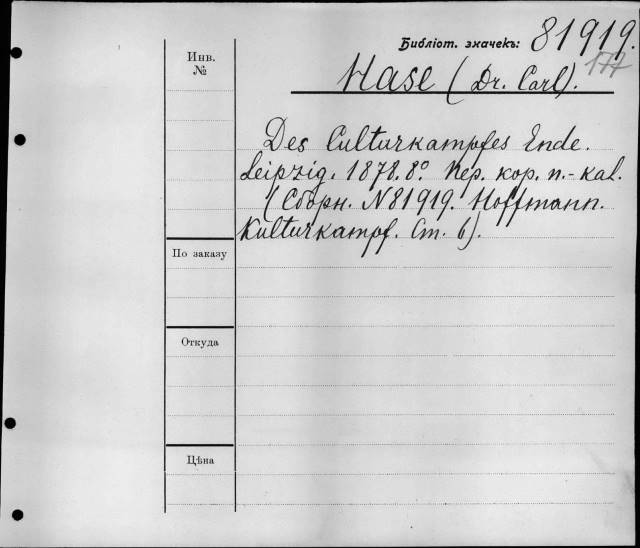 Библіот. значекъ: 81919.
177
Hase (Dr. Carl).
Инв.
№
Des Culturkampfes Ende.
Leipzig. 1878. 8º. Кер. кор. п.-кал.
(Сборн. N 81919. Hoffmann.
Kulturkampf. Ст. 6).
По заказу
Откуда
Цѣна